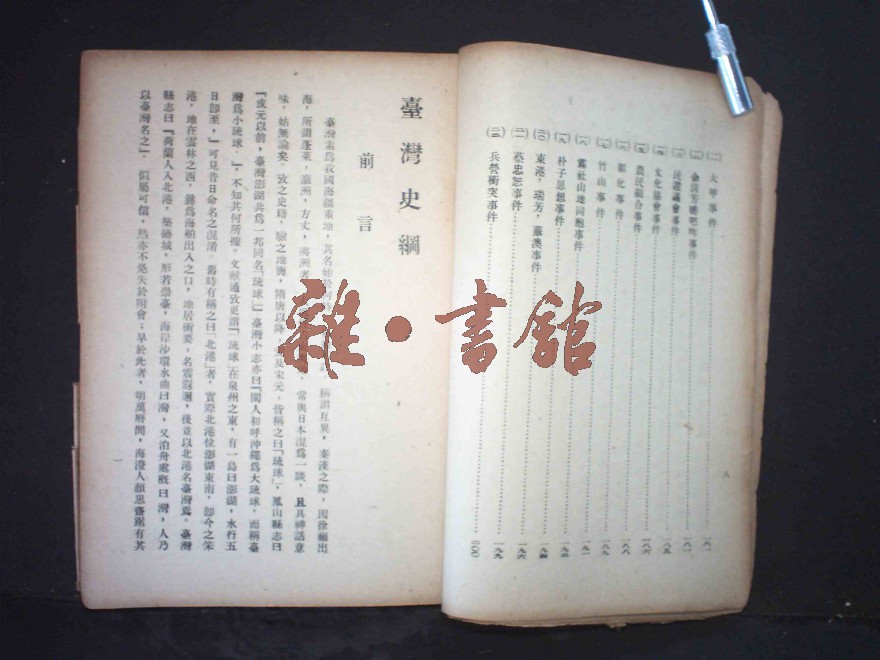 大甲事件……一八一
民選議會事件……一八一
文化協會事件……一八五
農民組合事件……一八六
彰化事件……一八八
竹山事件……一八九
霧社山地同胞事件……一九一
朴子思想事件……一九三
東港,瑞芳,蘇澳事件……一九四
蔡忠恕事件……一九六
兵營衝突事件……一九九
臺灣史綱
前言
臺灣素爲我國海疆重地,其名始於何 稱謂互異,秦漢之際,因徐福出
海,所謂蓬萊,瀛洲,方丈,夷洲者 常與日本混爲一談,且具神話意
味,姑無論矣。攷之史籍,驗之地輿,隋唐以降 及宋元,皆稱之曰「琉球」,鳳山縣志曰
『或元以前,臺灣澎湖共爲一邦同名「琉球」』臺灣小志亦曰『閩人初呼沖繩爲大琉球,而稱臺
灣爲小琉球。』,不知其何所據。文獻通攷更謂『琉球在泉州之東,有一島曰澎湖,水行五
日卽至,』可見昔日命名之混淆。舊時有稱之曰「北港」者,實際北港位澎湖東南,卽今之笨
港,地在雲林之西,歸爲海舶出入之口,地居衝要,名震遐邇,後竟以北港名臺灣焉。臺灣
縣志曰『荷蘭人入北港,築磚城,形若崇臺,海岸沙環水曲曰灣,又泊舟處概曰灣,人乃
以臺灣名之』,似屬可信,然亦不免失於附會;早於此者,明萬曆間,海澄人顏思齊踞有其
雜・書館